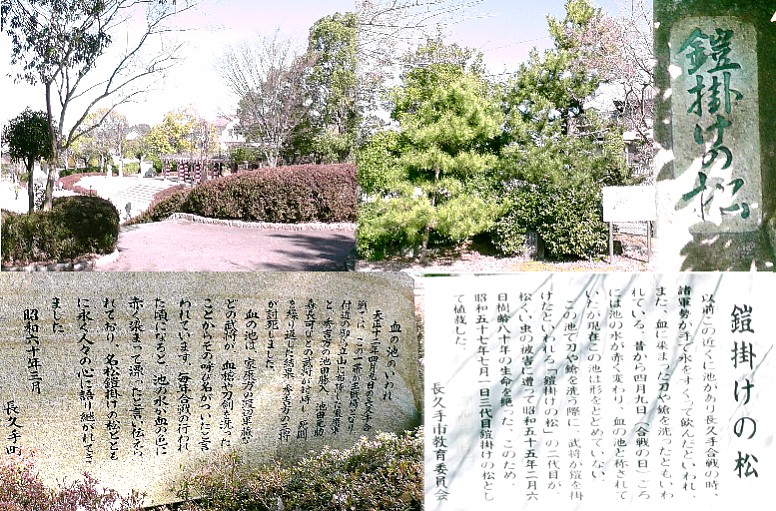 鎧掛けの松
血の池のいわれ
天正十二年四月九日の長久手合
戦では、この一帯が主戦場となり
付近の御旗立山に布陣した家康軍
と、秀吉方の池田勝入、池田
森長可らとの武将が対峙し 死闘
を繰り返した結果、秀吉方の三将
が討死しました。
血の池は、家康方の渡辺半蔵な
どの武将が、血槍や刀剣を洗った
ことからその呼び名がついたと言
われています。毎年合戦の行われ
た頃になると、池の水が血の色に
赤く染まって漂ったと言い伝えら
れており、名松鎧掛けの松ととも
に永く人々の心に語り継がれてき
ました
昭和六十年三月 長久手町
鎧掛けの松
以前この近くに池があり長久手合戦の時、
諸軍勢が手で水をすくって飲んだといわれ、
また、血に染まった刀や槍を洗ったともいわ
れている。昔から四月九日(合戦の日)ごろ
には池の水が赤く変わり、血の池と称されて
いたが現在この池は形をとどめていない。
この池で刀や槍を洗う際に、武将が鎧を掛
けたといわれる「鎧掛けの松」の二代目が、
松くい虫の被害に遭って昭和五十五年二月六
日樹齢八十年の生命を断った。このため、
昭和五十七年七月一日三代目鎧掛けの松とし
て植栽した。
長久手市教育委員会